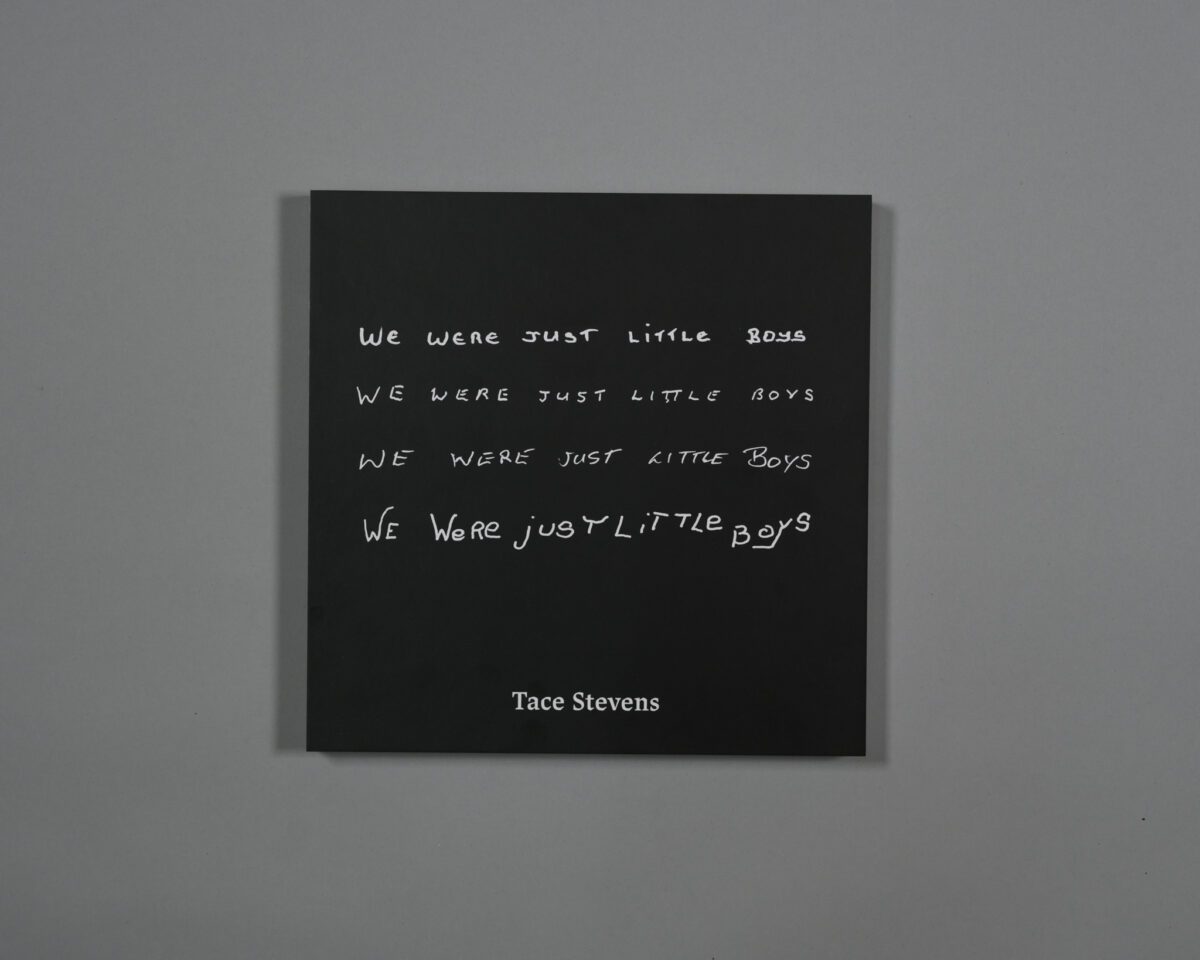 We WERE JUST LiTTLe BOYS
WE WERE JUST LITTLE BOYS
WE WERE JUST LITTLE BOYS
WE WeRe jUST LiTTLe BOyS
Tace Stevens